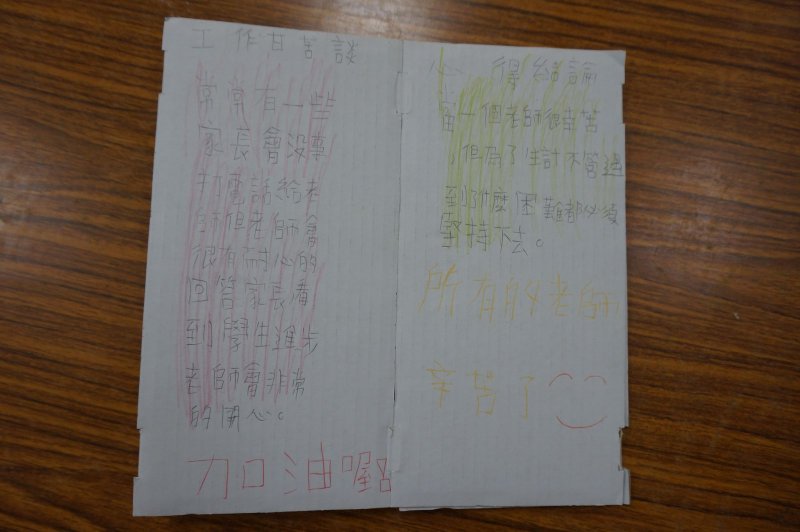 工作甘苦談
常常有一些
家長會沒事
打電話給老
師但老師會
很有耐心的
回答家長看
到學生進步
老師會非常
的開心。
加油喔
心得結論
當一個老師很辛苦
,但為了生計不管遇
到了什麼困難都必須
堅持下去。
所有的老師
辛苦了